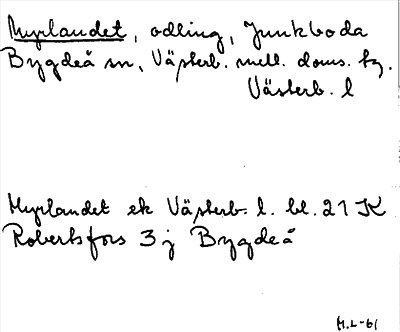 Myrlandet, odling, Junkboda
Bygdeå sn, Västerb. mell. doms. tg.
Västerb. l
Myrlandet ek Västerb. l. bl. 21 K
Robertsfors 3 j Bygdeå
M.L-61